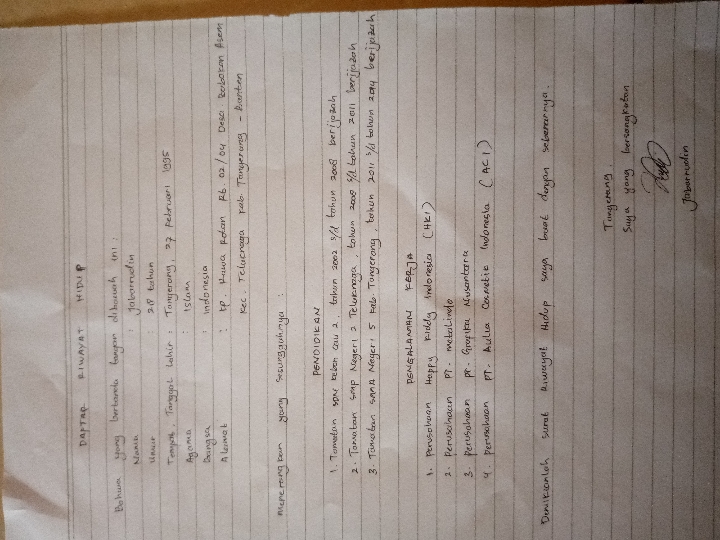 DAFTAR RIWAYAT HIDUP
Bahwa yang bertanda tangan dibawah ini :
Nama : Jabarrudin
Umur : 28 tahun
Tempat, Tanggal Lahir : Tangerang, 27 Februari 1995
Agama : Islam
Bangsa : Indonesia
Alamat : Kp. Rawa Rotan Rt. 02/04 Desa. Bobokan Asem
Kec. Teluknaga Kab. Tangerang - Banten
Menerangkan yang Sesungguhnya :
PENDIDIKAN
1. Tamatan SDN Kebon Cau 2, tahun 2002 s/d tahun 2008 berijazah
2. Tamatan SMP Negeri 2 Teluknaga, tahun 2008 s/d tahun 2011 berijazah
3. Tamatan SMA Negeri 5 Kab. Tangerang, tahun 2011 s/d tahun 2014 berijazah
PENGALAMAN KERJA
1. Perusahaan Happy Kiddy Indonesia (HKI)
2. Perusahaan PT. Metalindo
3. Perusahaan PT. Grafika Nusantara
4. Perusahaan PT. Aulia Cosmetic Indonesia (ACI)
Demikianlah surat Riwayat Hidup saya buat dengan sebenarnya.
Tangerang,
Saya yang bersangkutan
Jabarrudin